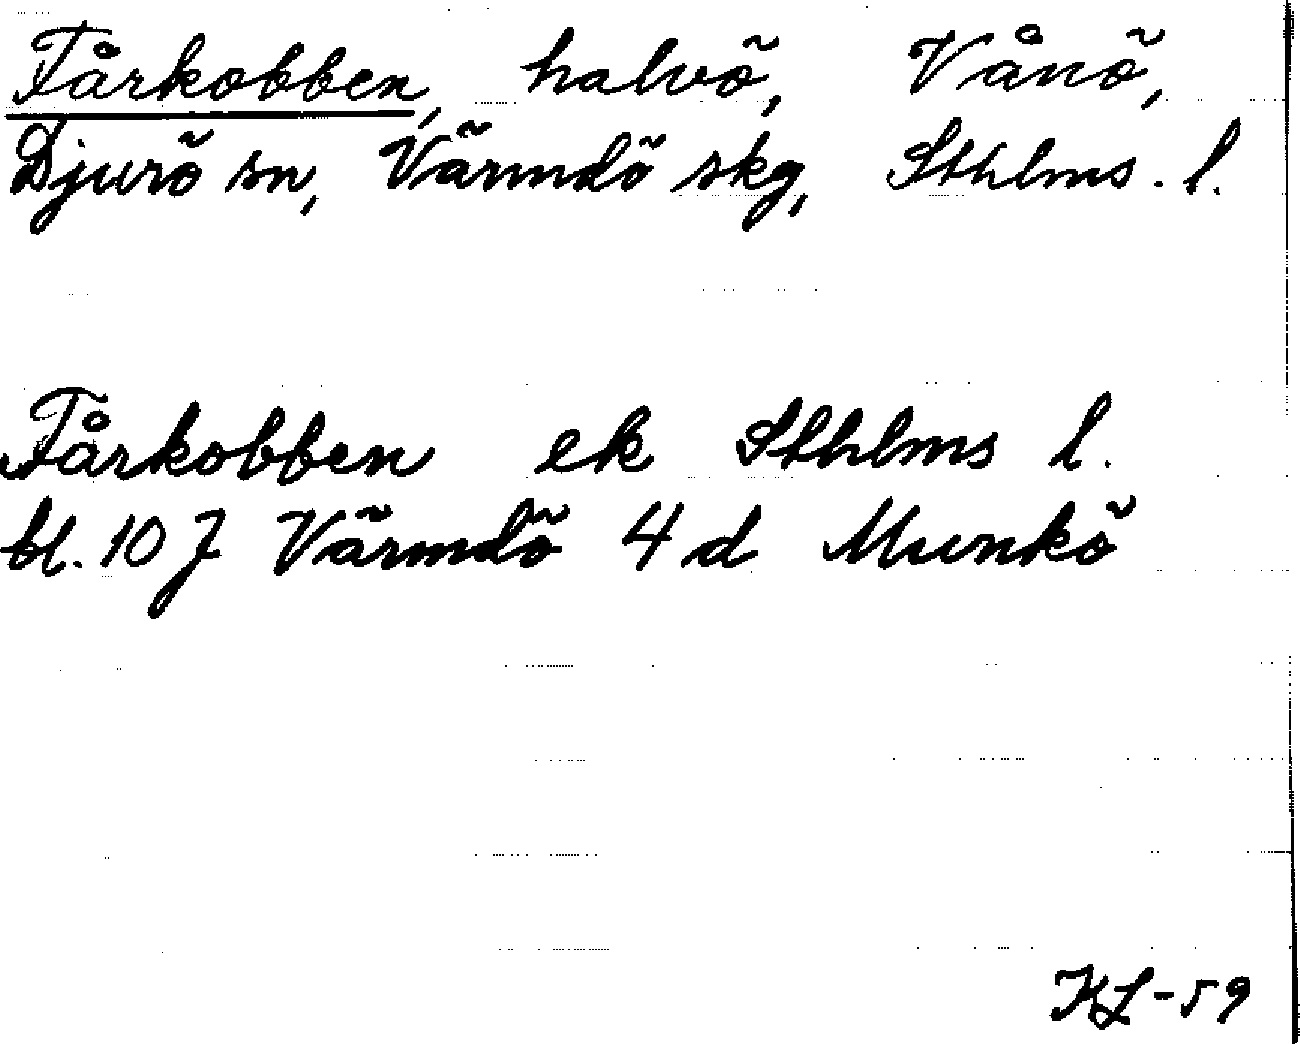 Fårkobben, halvö, Vånö,
Djurö sn, Värmdö skg, Sthlms. l.
Fårkobben ek Sthlms l.
bl. 107 Värmdö 4 d Munkö
KL-59